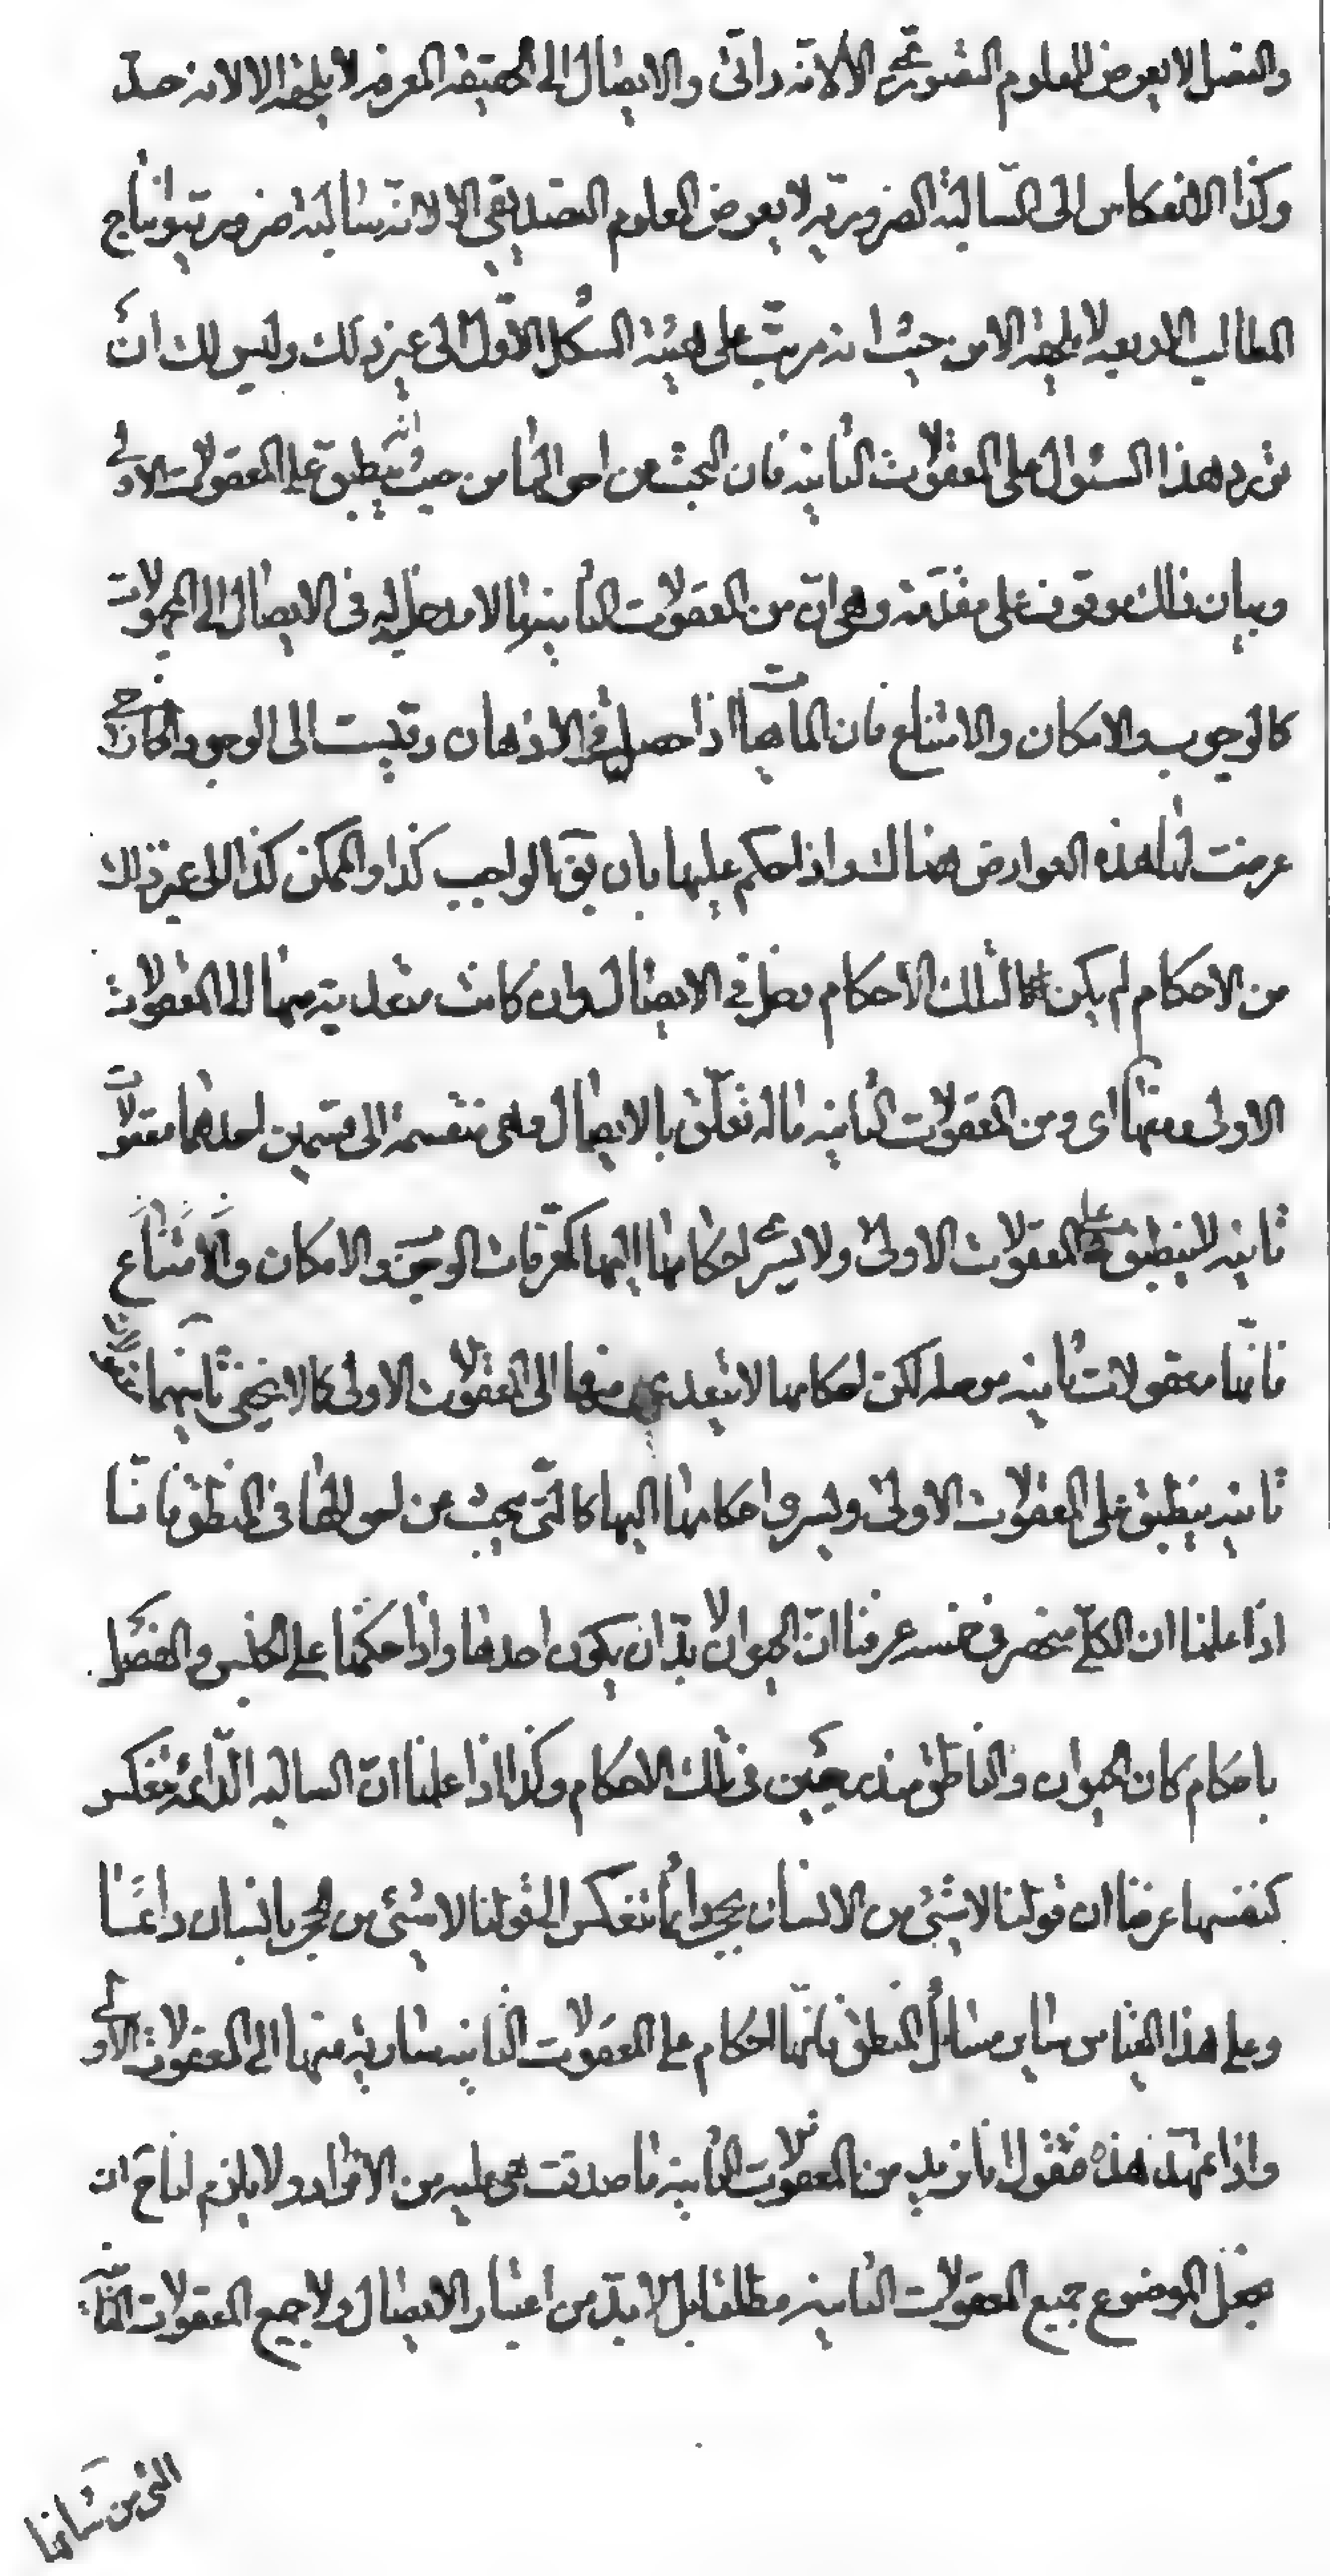 والفصل لا يعرض للمعلوم التصوري الا لانه ذاتي والايصال الى الحقيقة المعرفه لا يلحقه الا لانه حد
وكذا الانعكاس الى السالبة الضرورية لا يعرض المعلوم التصديقي الا لانه سالبة ضرورية وانتاج
المطالب الاربعه لا يلحقه الا من حيث انه مرتب على هيئة الشكل الاول الى غير ذلك وليس لك ان
تورد هذا السئوال على المعقولات الثانيه فان البحث عن احوالها من حيث انه ينطبق على المعقولات الاولى
وبيان ذلك موقوف على مقدمة وهي ان من المعقولات الثانيه ما لا مدخل له في الايصال الى المجهولات
كالوجوب والامكان والامتناع فان الماهيات اذا حصل في الاذهان وقيست الى الوجود الخارجي
عرضت لها هذه العوارض هناك واذا حكم عليها بان يق الواجب كذا والممكن كذا الى غير ذلك
من الاحكام لم يكن لتلك الاحكام دخل في الايصال وان كانت متعدية منها الى المعقولات
الاولى ومنها اى ومن المعقولات الثانيه ما له تعلق بالايصال وهي منقسمة الى قسمين احدهما معقولات
ثانيه لا ينطبق على المعقولات الاولى ولا يسرى احكامها اليها كمعرفات الوجوب والامكان والامتناع
فانها معقولات ثانيه موصله لكن احكامها لا يتعدى منها الى المعقولات الاولى كما لا يخفى ثانيهما
ثانيه ينطبق على المعقولات الاولى ويسرى احكامها اليها كالتي يبحث عن احوالها في المنطق فانا
اذا علمنا ان الكلي منحصر في خمسه عرفنا ان الحيوان لا بد ان يكون احدها واذا حكمنا على الجنس والفصل
باحكام كان الحيوان والناطق مندرجين في تلك الاحكام وكذا اذا علمنا ان السالبه الدائمة تنعكس
كنفسها عرفنا ان قولنا لا شئ من الانسان بحجر دائما تنعكس الى قولنا لا شئ من الحجر بانسان دائما
وعلى هذا القياس ساير مسائل المنطق فانها احكام على المعقولات الثانيه سارية منها الى المعقولات الاولى
واذا تمهد هذه فنقول انا نريد من المعقولات الثانية ما صدقت هي عليه من الافراد ولا يلزم لنا ح ان
نجعل الموضوع جميع المعقولات الثانيه مطلقا بل لا بد من اعتبار الايصال ولا جميع المعقولات الثانيه
التي من شانها